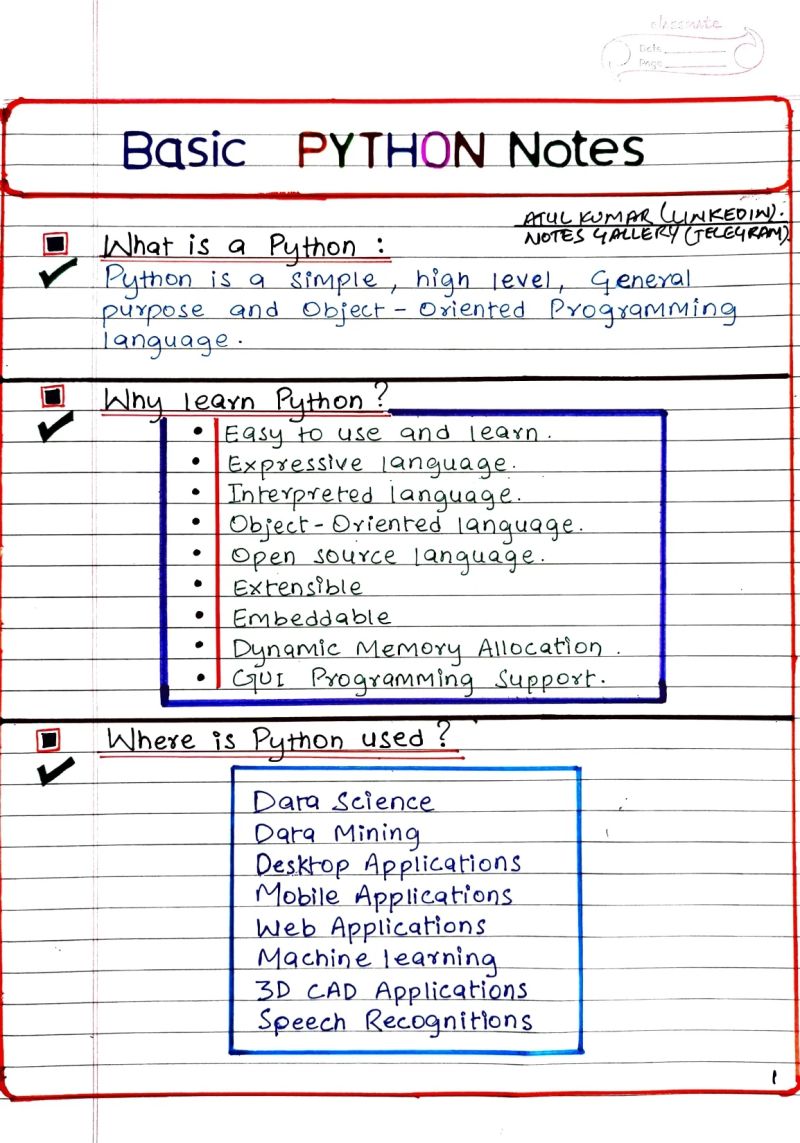 classmate
Date
Page
Basic PYTHON Notes
ATUL KUMAR (LINKEDIN).
NOTES GALLERY (TELEGRAM).
What is a Python :
Python is a simple, high level, General
purpose and Object-Oriented Programming
language.
Why learn Python?
• Easy to use and learn.
• Expressive language.
• Interpreted language.
• Object-Oriented language.
• Open source language.
• Extensible
• Embeddable
• Dynamic Memory Allocation.
• GUI Programming Support.
Where is Python used?
Data Science
Data Mining
Desktop Applications
Mobile Applications
Web Applications
Machine learning
3D CAD Applications
Speech Recognitions
1